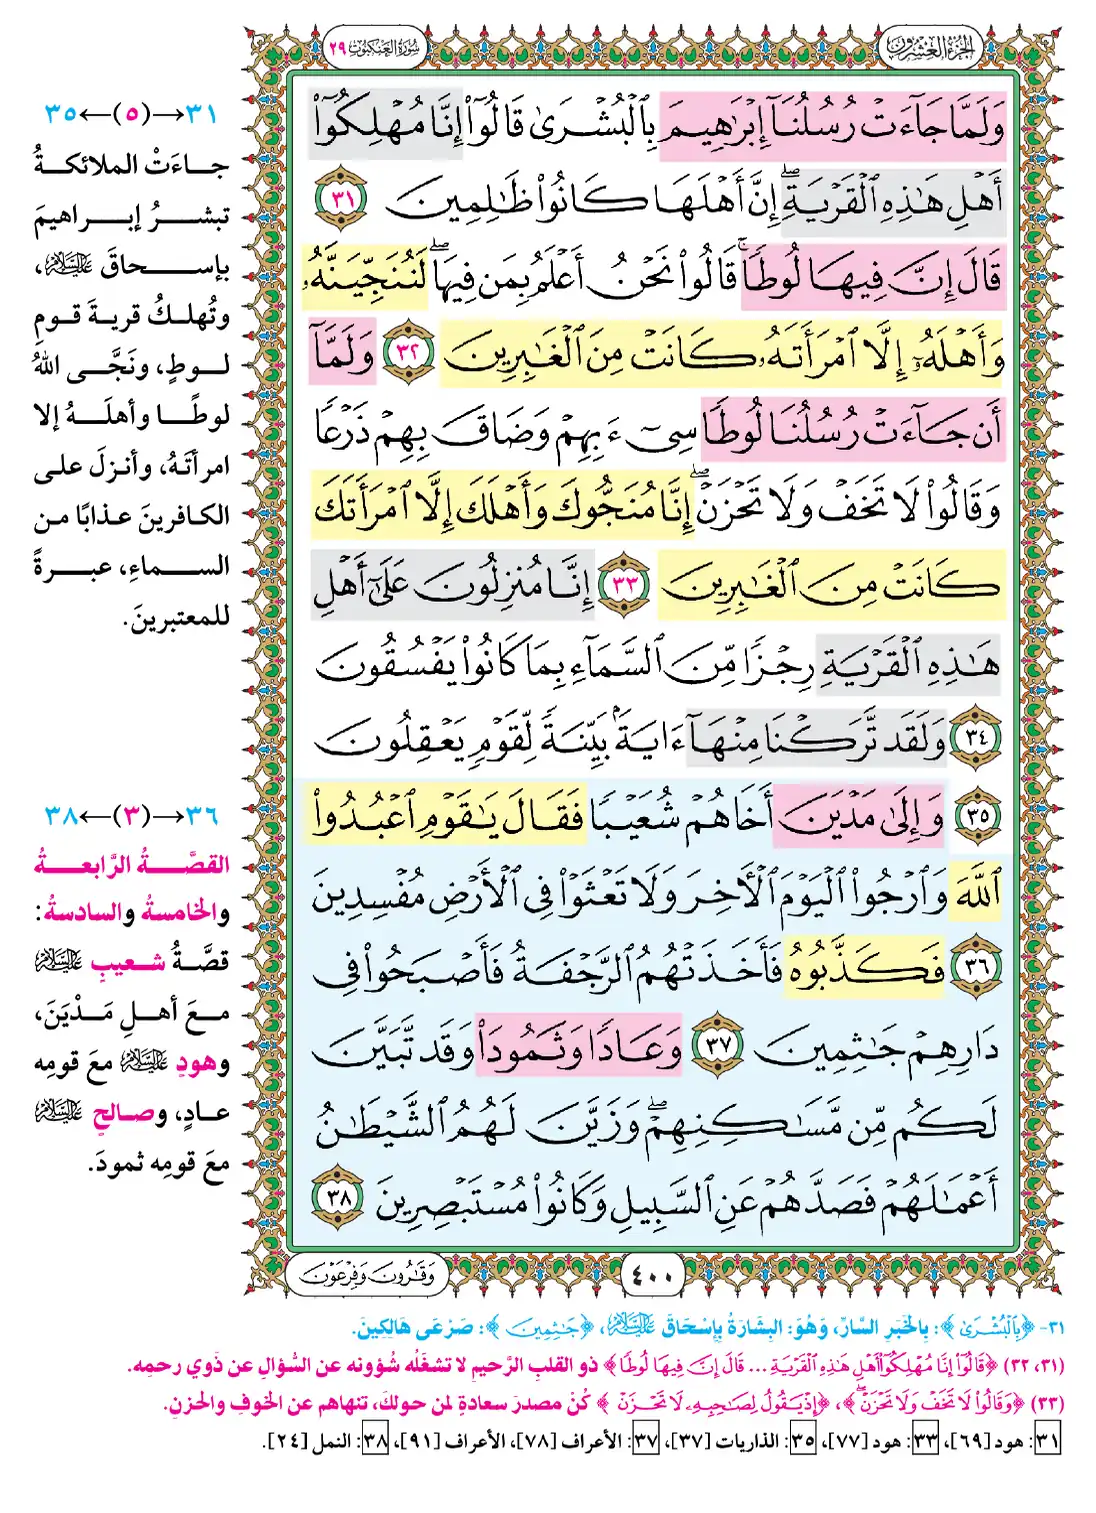 الجزء العشرون
سورة العنكبوت ٢٩
وَلَمَّا جَآءَتْ رُسُلُنَآ إِبْرَٰهِيمَ بِٱلْبُشْرَىٰ قَالُوٓا۟ إِنَّا مُهْلِكُوٓا۟
أَهْلِ هَـٰذِهِ ٱلْقَرْيَةِ ۖ إِنَّ أَهْلَهَا كَانُوا۟ ظَـٰلِمِينَ ٣١
قَالَ إِنَّ فِيهَا لُوطًا ۚ قَالُوا۟ نَحْنُ أَعْلَمُ بِمَن فِيهَا ۖ لَنُنَجِّيَنَّهُۥ
وَأَهْلَهُۥٓ إِلَّا ٱمْرَأَتَهُۥ كَانَتْ مِنَ ٱلْغَـٰبِرِينَ ٣٢ وَلَمَّآ
أَن جَآءَتْ رُسُلُنَا لُوطًا سِىٓءَ بِهِمْ وَضَاقَ بِهِمْ ذَرْعًا
وَقَالُوا۟ لَا تَخَفْ وَلَا تَحْزَنْ ۖ إِنَّا مُنَجُّوكَ وَأَهْلَكَ إِلَّا ٱمْرَأَتَكَ
كَانَتْ مِنَ ٱلْغَـٰبِرِينَ ٣٣ إِنَّا مُنزِلُونَ عَلَىٰٓ أَهْلِ
هَـٰذِهِ ٱلْقَرْيَةِ رِجْزًا مِّنَ ٱلسَّمَآءِ بِمَا كَانُوا۟ يَفْسُقُونَ
٣٤ وَلَقَد تَّرَكْنَا مِنْهَآ ءَايَةًۢ بَيِّنَةً لِّقَوْمٍ يَعْقِلُونَ
٣٥ وَإِلَىٰ مَدْيَنَ أَخَاهُمْ شُعَيْبًا فَقَالَ يَـٰقَوْمِ ٱعْبُدُوا۟
ٱللَّهَ وَٱرْجُوا۟ ٱلْيَوْمَ ٱلْـَٔاخِرَ وَلَا تَعْثَوْا۟ فِى ٱلْأَرْضِ مُفْسِدِينَ
٣٦ فَكَذَّبُوهُ فَأَخَذَتْهُمُ ٱلرَّجْفَةُ فَأَصْبَحُوا۟ فِى
دَارِهِمْ جَـٰثِمِينَ ٣٧ وَعَادًا وَثَمُودَا۟ وَقَد تَّبَيَّنَ
لَكُم مِّن مَّسَـٰكِنِهِمْ ۖ وَزَيَّنَ لَهُمُ ٱلشَّيْطَـٰنُ
أَعْمَـٰلَهُمْ فَصَدَّهُمْ عَنِ ٱلسَّبِيلِ وَكَانُوا۟ مُسْتَبْصِرِينَ ٣٨
٤٠٠
وَقَـٰرُونَ وَفِرْعَوْنَ
٣١→(٥)←٣٥
جاءَتْ الملائكةُ
تبشرُ إبراهيمَ
بإسحاقَ عليه السلام،
وتُهلكُ قريةَ قومِ
لوطٍ، ونَجَّى اللهُ
لوطًا وأهلَهُ إلا
امرأتَهُ، وأنزلَ على
الكافرينَ عذابًا من
السماءِ، عبرةً
للمعتبرينَ.
٣٦→(٣)←٣٨
القصَّةُ الرَّابعةُ
والخامسةُ والسادسةُ:
قصَّةُ شعيبٍ عليه السلام
معَ أهلِ مَدْيَنَ،
وهودٍ عليه السلام معَ قومِه
عادٍ، وصالحٍ عليه السلام
معَ قومِه ثمودَ.
٣١- ﴿بِٱلْبُشْرَىٰ﴾: بِالخَبَرِ السَّارِّ، وَهُوَ: البِشَارَةُ بِإِسْحَاقَ عليه السلام، ﴿جَـٰثِمِينَ﴾: صَرْعَى هَالِكِينَ.
(٣١، ٣٢) ﴿قَالُوٓا۟ إِنَّا مُهْلِكُوٓا۟ أَهْلِ هَـٰذِهِ ٱلْقَرْيَةِ ... قَالَ إِنَّ فِيهَا لُوطًا﴾ ذو القلبِ الرَّحيمِ لا تشغَلُه شُؤونه عن السُّؤالِ عن ذَوي رحمِه.
(٣٣) ﴿وَقَالُوا۟ لَا تَخَفْ وَلَا تَحْزَنْ ۖ﴾، ﴿إِذْ يَقُولُ لِصَـٰحِبِهِۦ لَا تَحْزَنْ﴾ كُنْ مصدرَ سعادةٍ لمن حولكَ، تنهاهم عن الخوفِ والحزنِ.
٣١: هود [٦٩]، ٣٣: هود [٧٧]، ٣٥: الذاريات [٣٧]، ٣٧: الأعراف [٧٨]، الأعراف [٩١]، ٣٨: النمل [٢٤].